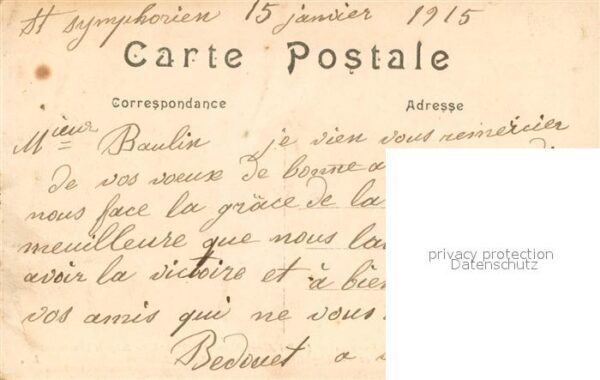 St symphorien 15 janvier 1915
Carte Postale
Correspondance
Adresse
Mieur Baulin je vien vous remercier
de vos voeux de bonne a
nous face la grâce de la
meuilleure que nous l'a
avoir la victoire et à bien
vos amis qui ne vous
Bedouet a
privacy protection
Datenschutz